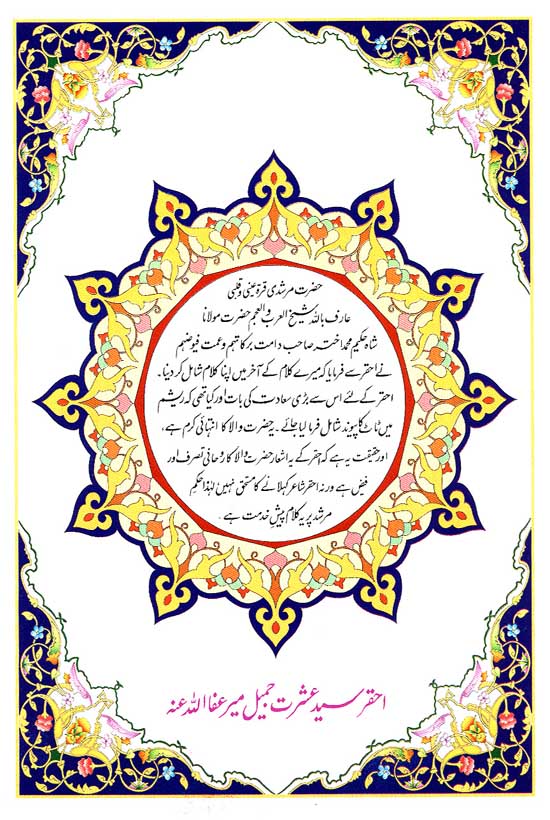 حضرت مرشدی قرۃ عینی و قلبی
عارف باللہ شیخ العرب والعجم حضرت مولانا
شاہ حکیم محمد اختر صاحب دامت برکاتہم و عمت فیوضہم
نے احقر سے فرمایا کہ میرے کلام کے آخر میں اپنا کلام شامل کر دینا۔
احقر کے لئے اس سے بڑی سعادت کی بات اور کیا تھی کہ ریشم
میں ٹاٹ کا پیوند شامل فرمایا جائے۔ یہ حضرت والا کا انتہائی کرم ہے،
اور حقیقت یہ ہے کہ احقر کے یہ اشعار حضرت والا کا روحانی تصرف اور
فیض ہے ورنہ احقر شاعر کہلانے کا مستحق نہیں لہٰذا بحکم
مرشد پر یہ کلام پیش خدمت ہے۔
احقر سید عشرت جمیل میر عفا اللہ عنہ